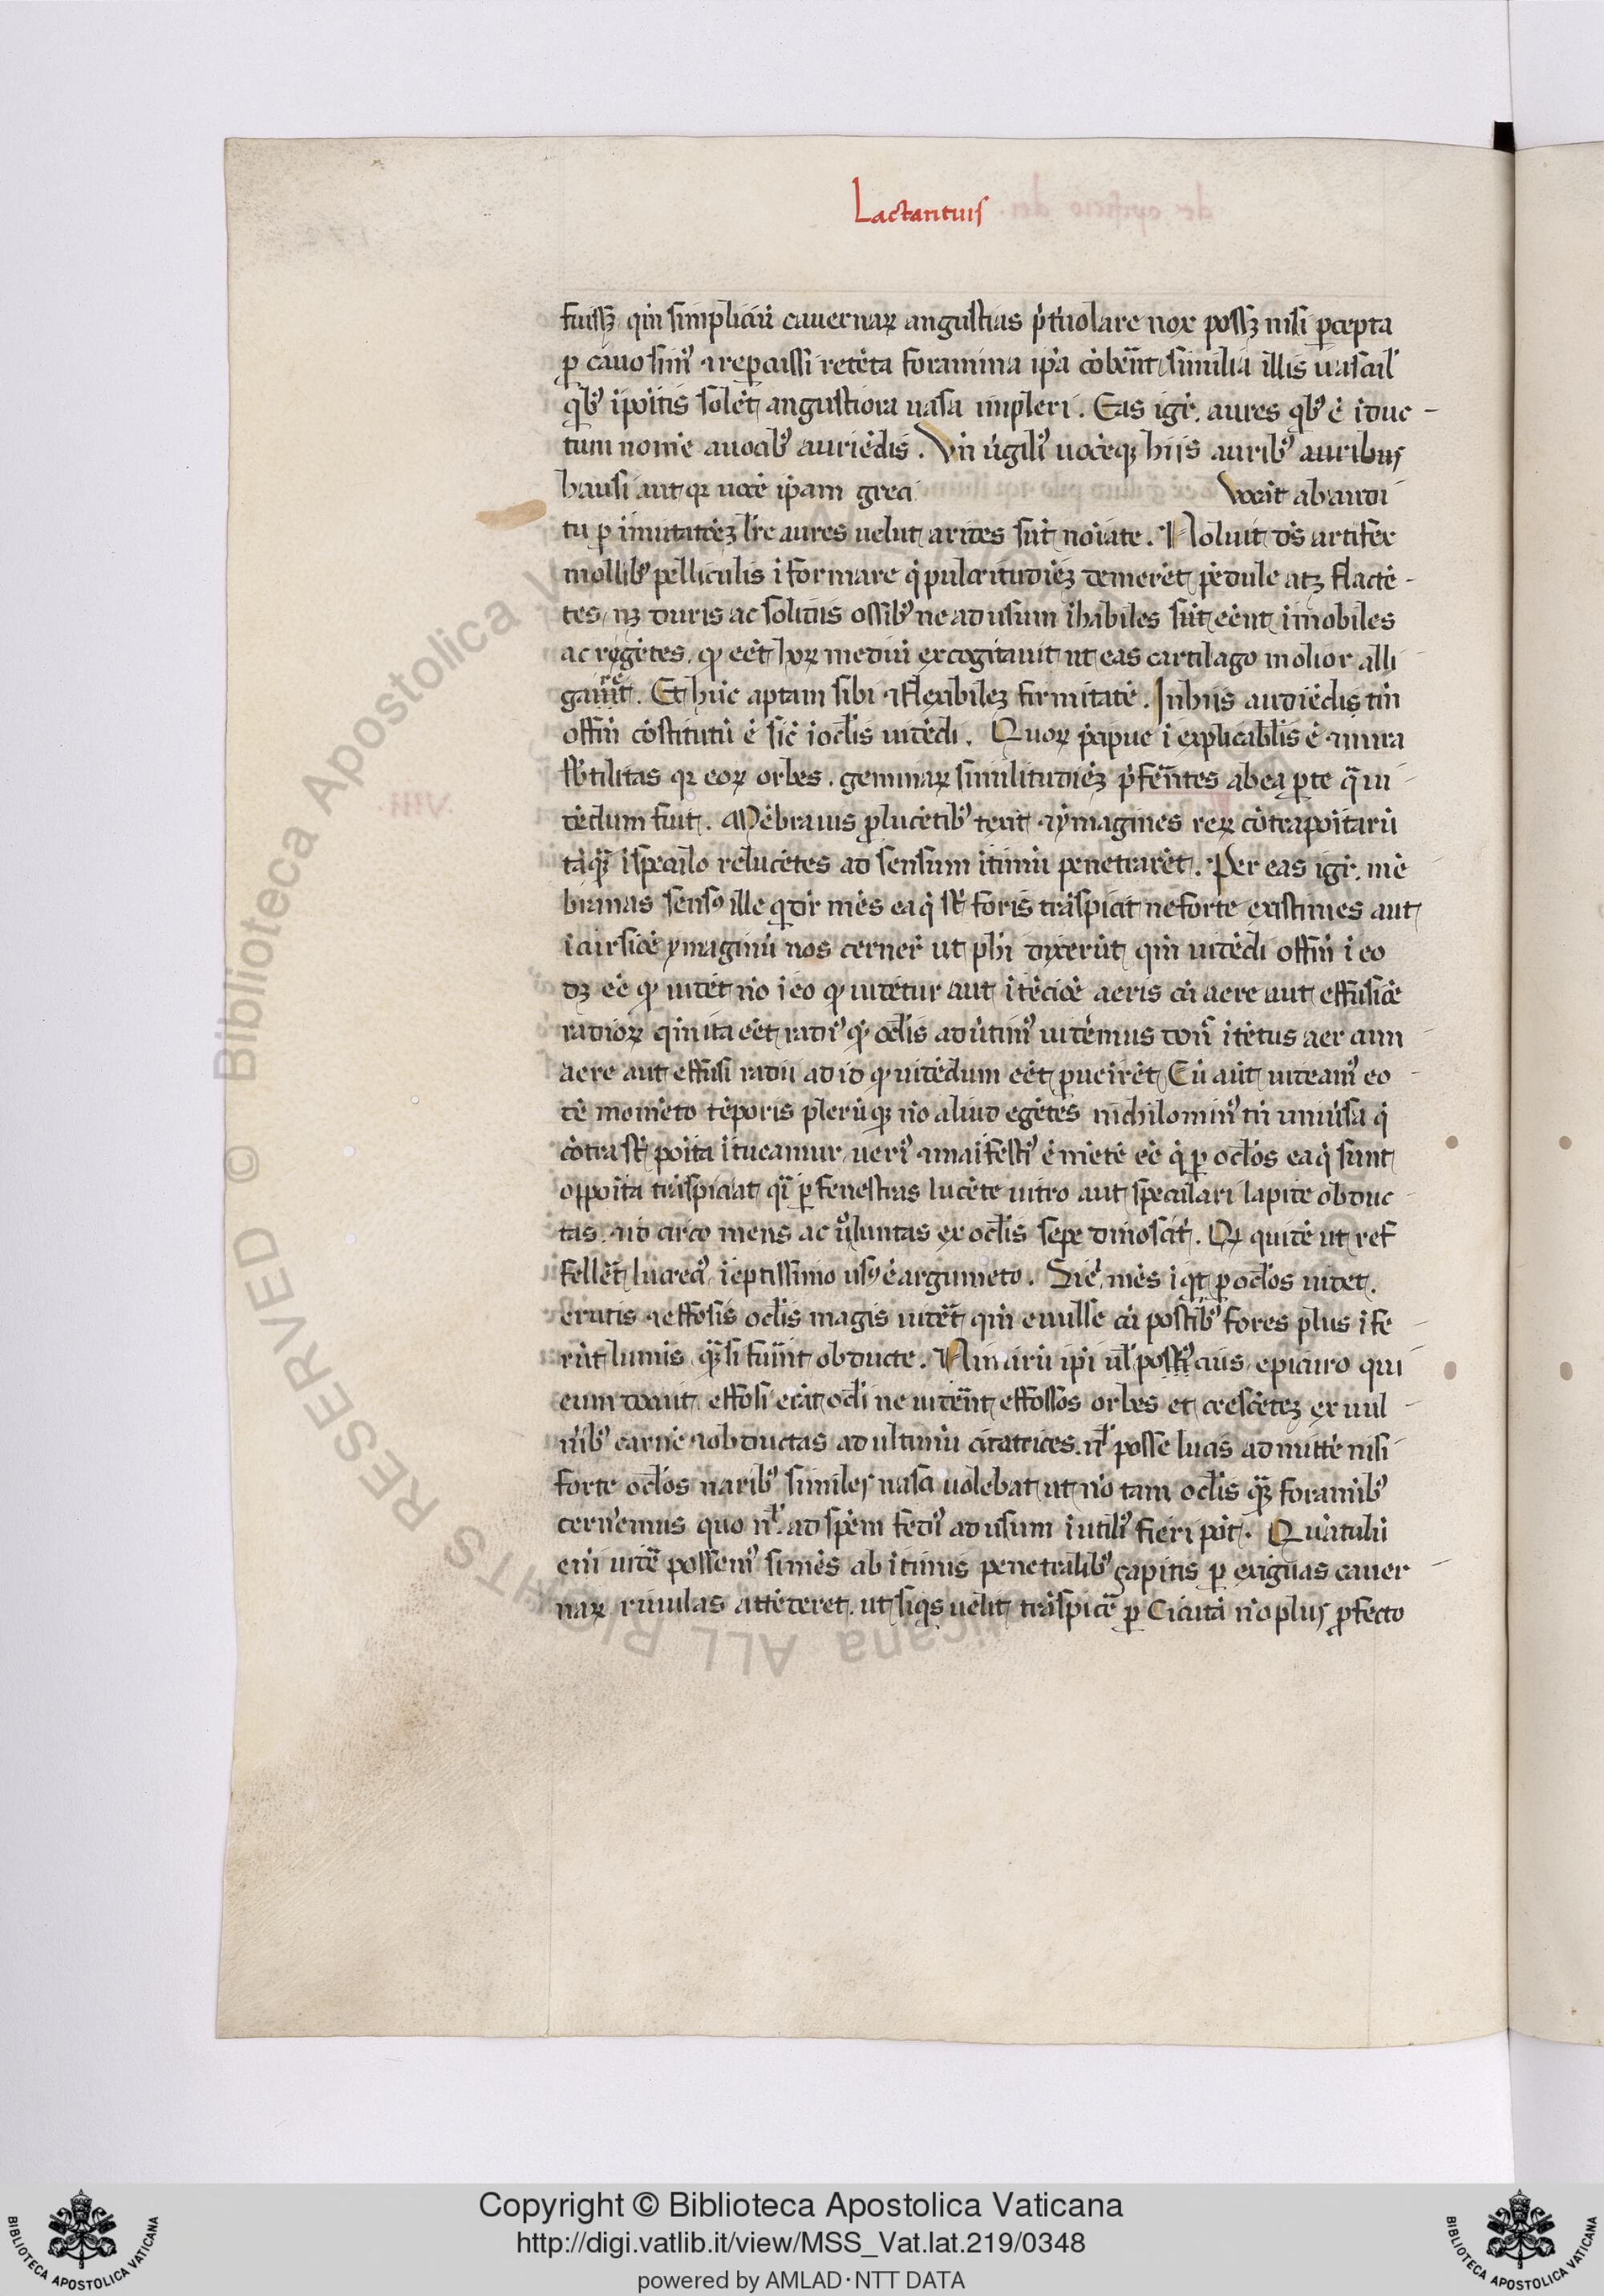 Lactantius
fuissꝫ qm̄ simpliciū cauernaꝝ angustias p̄t̄uolare uox possꝫ nisi ꝑcepta
ꝑ cauos sin⁹ ⁊ reꝑcussi retēta foramina ip̄a cohibēnt similia illis uascul'
qͥb⁹ īpoītis solēt angustiora uasa impleri. Eas igr̄. aures qͥb⁹ ē īduc-
tum nomē auocib⁹ auriēdis. Vn̄ ūgili⁹ uocēqꝫ hijs aurib⁹ auribus
hausi aut qꝛ uocē ip̄am greci
uocāt ab audi
tu ꝑ īmutatōeꝫ lr̄e aures uelut audes sūt noīate. Noluit ds̄ artifex
mollib⁹ pelliculis īformare q̄ pulcritudiēꝫ demerēt pēdule atqꝫ flacce-
tes, nqꝫ duris ac solidis ossib⁹ ne ad usum īhabiles sūt eēnt īmobiles
ac rigētes. qͩ eēt hoꝝ mediū excogitauit ut eas cartilago molior alli
garēt. Et hūc aptam sibi ⁊ flexibileꝫ firmitatē. In hijs audiēdis tm̄
offm̄ cōstitutū ē sic ī oclis uidēdi. Quoꝝ p̄cipue ī explicabilis ē ⁊ mira
sb̄tilitas qꝛ eoꝝ orbes. gemmaꝝ similitudiēꝫ p̄ferentes ab ea ꝑte qͣ ui-
dēdum fuit. Mēbranis ꝓlucētib⁹ texit ⁊ ymagines reꝝ cōtrapoītarū
tāqͣꝫ ī speculo relucētes ad sensum ītimū penetrarēt. Per eas igr̄. mē
branas sens⁹ ille q̄ dr̄ mēs ea q̄ st̄ foris trāspicit ne forte existimes aut
ī cursiōe ymaginū nos cernerē ut phi dixerūt qm̄ uidēdi offm̄ ī eo
dꝫ eē qͩ uidet nō ī eo qͩ uidetur aut ītēciōe aeris cū aere aut effusiōe
radioꝝ qm̄ ita eēt radi⁹ qͩ oclis aduertim⁹ uidēmus donͨ ītētus aer cum
aere aut effusi radii ad id qͩ uidēdum eēt ꝑueirēt. Cū aūt uideam⁹ eo-
dē momēto tēporis plerūqꝫ nō aliud agētes nichilomin⁹ tn̄ uniūsa q̄
cōtra st̄ poīta ītueamur ueri⁹ ⁊ maifesti⁹ ē mētē eē q̄ ꝑ oclos ea q̄ sunt
opposita trāspiciat qͣi ꝑ fenestras lucēte uitro aut speculari lapide obduc-
tas. ⁊ id circo mens ac uoluntas ex oclis sepe dinoscit̄. Qͩ quidē ut ref
felleret lucreci⁹ ī eptissimo us⁹ ē argumēto. Si ē. mēs īqͥt ꝑ oclos uidet.
erutis ⁊ effossis oclis magis uidēt qm̄ euulse cū postib⁹ fores plus īfe-
rūt lumis. qͣꝫ si fuerint obducte. Nimirū ip̄i ul' poti⁹ epicuro qui
eum docuit effosi erāt ocli ne uidēnt effossos orbes et crescētēꝫ ex uul-
nib⁹ carne ⁊ obductas ad ultimū cicatrices. nl' posse lucis admittē nisi
forte oclos narib⁹ similes nasci uolebat ut nō tam oclis qͣꝫ foramīb⁹
cernemus quo nl'. ad spēm fedi⁹ ad usum īutili⁹ fieri pōt. Quātulū
em̄ uidē possem⁹ si mēs ab ītimis penetralib⁹ capitis ꝑ exiguas cauer-
naꝝ rimulas attēderet. ut siqͥs uelit trāspicē ꝑ Cicutā nō plus ꝓfecto
Copyright © Biblioteca Apostolica Vaticana
http://digi.vatlib.it/view/MSS_Vat.lat.219/0348
powered by AMLAD·NTT DATA